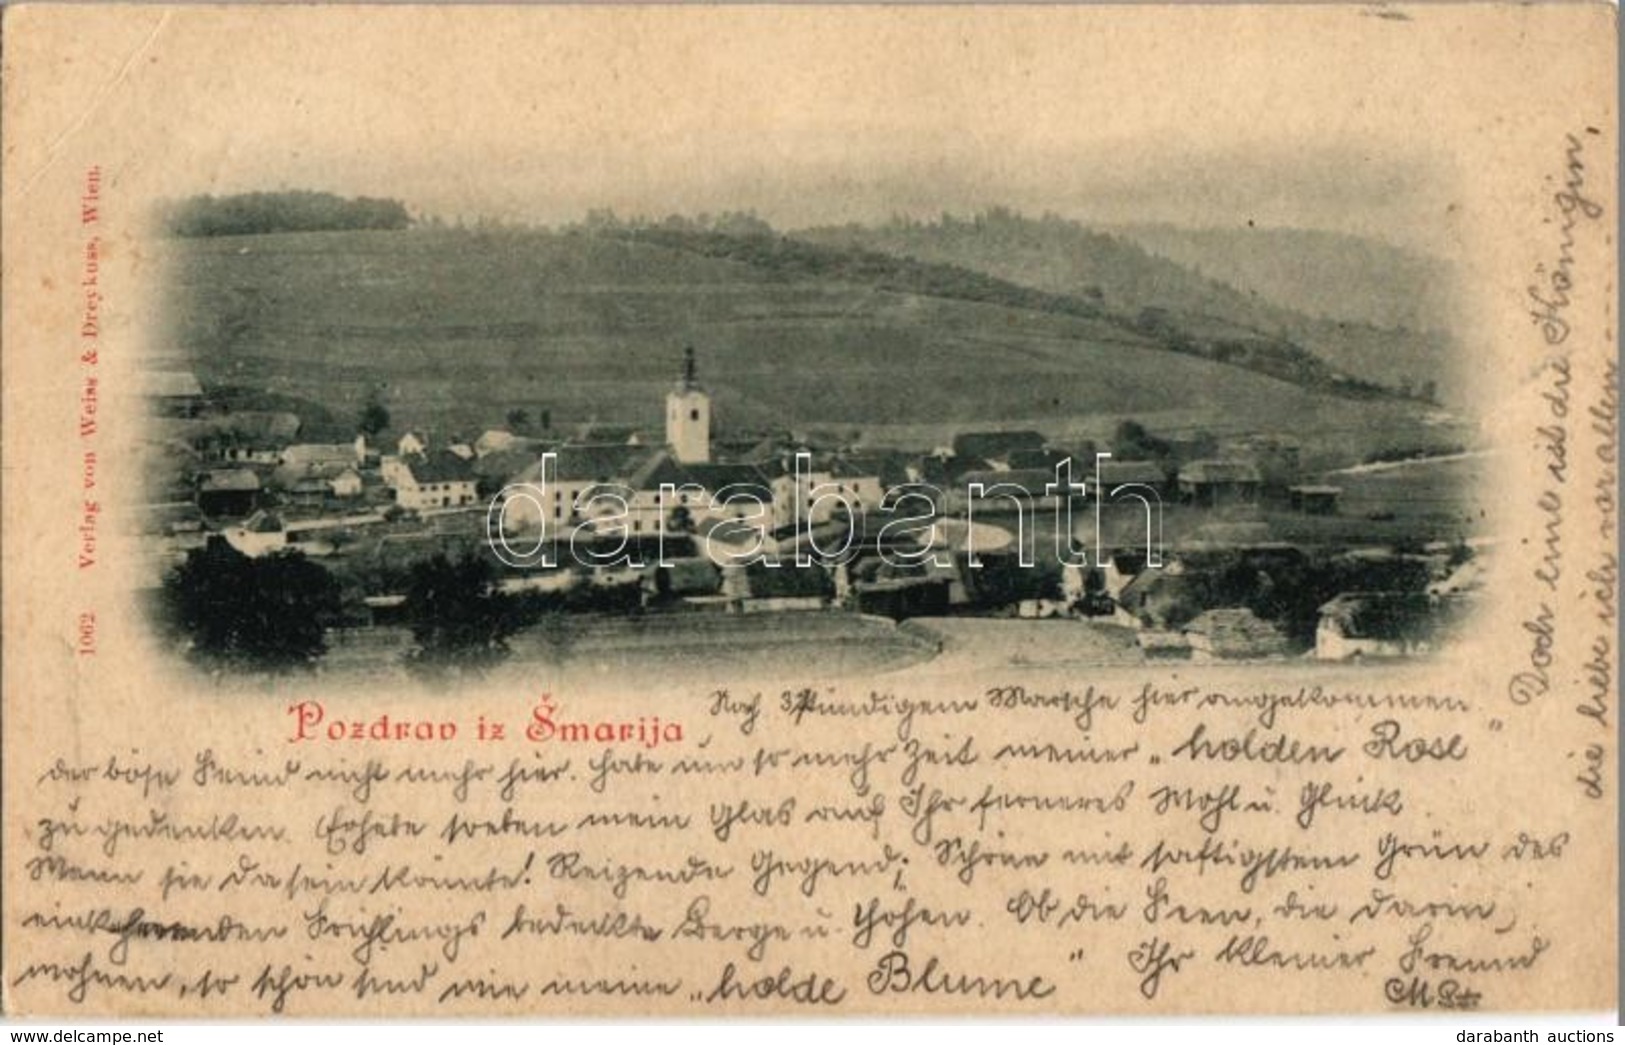 1062 Verlag von Weiss & Dreykuss, Wien.
darabanth
Pozdrav iz Šmarija
Nach 3stündigem Marsche hier angekommen.
der böse Feind nicht mehr hier. Habe um so mehr Zeit meiner „holden Rose"
zu gedenken. Erhebe soeben mein Glas auf Ihr ferneres Wohl u. Glück.
Wenn sie da sein könnte! Reizende Gegend; Schöne mit saftigstem Grün des
einkehrenden Frühlings bedeckte Berge u. Höhen. Ob die Feen, die darin
wohnen, so schön sind wie meine „holde Blume" Ihr kleiner Freund
Doch eine ist die Königin,
die liebe ich vor allen
darabanth auctions